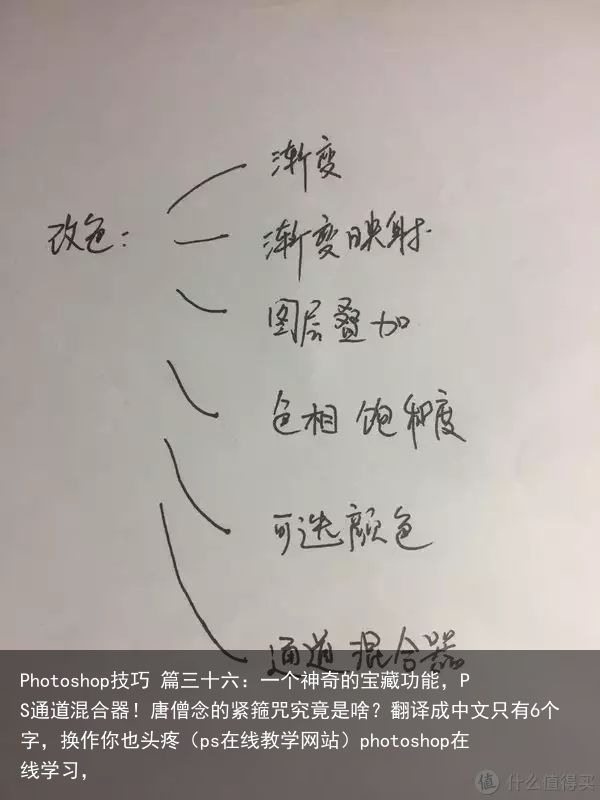 渐变
改色:
渐变映射
图层叠加
色相 饱和度
可选颜色
通道混合器
Photoshop技巧 篇三十六：一个神奇的宝藏功能，P
S通道混合器！唐僧念的紧箍咒究竟是啥？翻译成中文只有6个
字，换作你也头疼（ps在线教学网站）photoshop在
线学习，
值 什么值得买